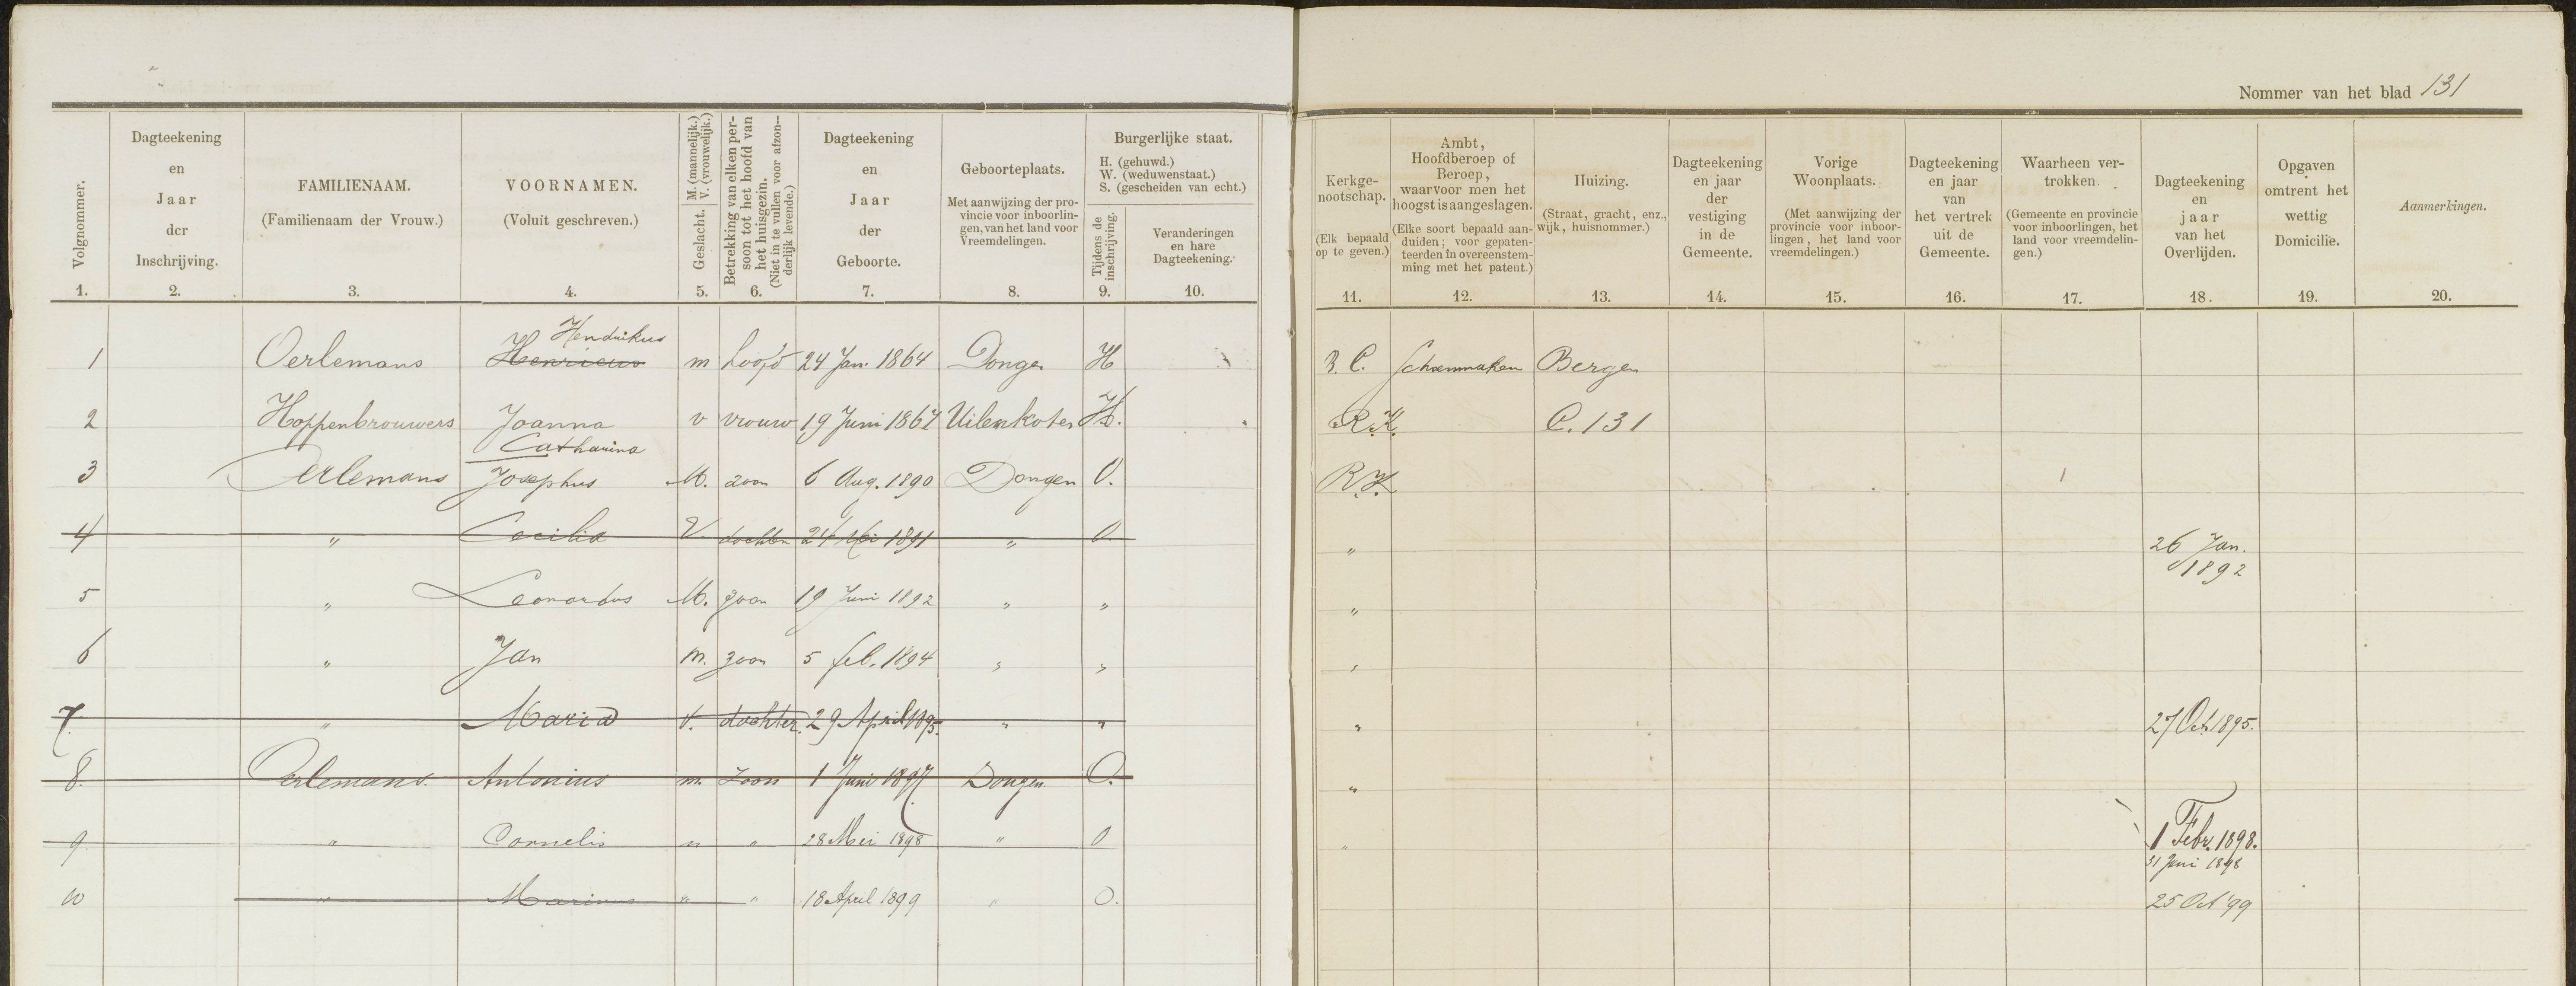 Nommer van het blad 131
Volgnommer.
Dagteekening
en
Jaar
der
Inschrijving.
FAMILIENAAM.
(Familienaam der Vrouw.)
VOORNAMEN.
(Voluit geschreven.)
Geslacht. M. (mannelijk.) V. (vrouwelijk.)
Betrekking van elken per-
soon tot het hoofd van
het huisgezin.
(Niet in te vullen voor afzon-
derlijk levende.)
Dagteekening
en
Jaar
der
Geboorte.
Geboorteplaats.
Met aanwijzing der pro-
vincie voor inboorlin-
gen, van het land voor
Vreemdelingen.
Burgerlijke staat.
H. (gehuwd.)
W. (weduwenstaat.)
S. (gescheiden van echt.)
Tijdens de
inschrijving.
Veranderingen
en hare
Dagteekening.
Kerkge-
nootschap.
(Elk bepaald
op te geven.)
Ambt,
Hoofdberoep of
Beroep,
waarvoor men het
hoogst is aangeslagen.
(Elke soort bepaald aan-
duiden; voor gepaten-
teerden in overeenstem-
ming met het patent.)
Huizing.
(Straat, gracht, enz.,
wijk, huisnommer.)
Dagteekening
en jaar
der
vestiging
in de
Gemeente.
Vorige
Woonplaats.
(Met aanwijzing der
provincie voor inboor-
lingen, het land voor
vreemdelingen.)
Dagteekening
en jaar
van
het vertrek
uit de
Gemeente.
Waarheen ver-
trokken.
(Gemeente en provincie
voor inboorlingen, het
land voor vreemdelin-
gen.)
Dagteekening
en
jaar
van het
Overlijden.
Opgaven
omtrent het
wettig
Domicilie.
Aanmerkingen.
1. 2. 3. 4. 5. 6. 7. 8. 9. 10. 11. 12. 13. 14. 15. 16. 17. 18. 19. 20.
Hendrikus
1 Oerlemans Henricus m hoofd 24 Jan. 1864 Dongen H R. C. Schoenmaker Bergen
2 Hoppenbrouwers Joanna v vrouw 19 Juni 1867 H. R.K. C. 131
Catharina
3 Oerlemans Josephus M. zoon 6 Aug. 1890 Dongen O. R.K.
4 " Cecilia V dochter 1891 " O " 26 Jan.
1892
5 " Leonardus M. zoon 19 Juni 1892 " " "
6 " Jan m. zoon 5 feb. 1894 " " "
7. " Maria v. dochter. 29 April 1895. " " " 27 Oct. 1895.
8. Oerlemans. Antonius m. Zoon 1 Juni 1897 Dongen. O. "
9 " Cornelis " " 28 Mei 1898 " O " 1 Febr. 1898.
Juni 1898
10 " Marinus " " 18 April 1899 " O. 25 Oct '99